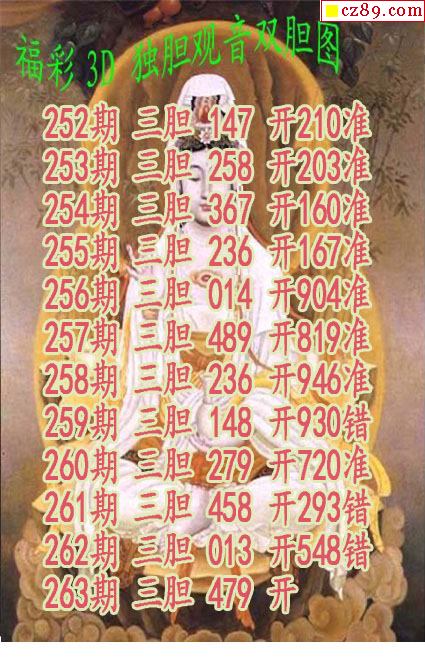 cz89.com
福彩 3D 独胆观音双胆图
252期 三胆 147 开210准
253期 三胆 258 开203准
254期 三胆 367 开160准
255期 三胆 236 开167准
256期 三胆 014 开904准
257期 三胆 489 开819准
258期 三胆 236 开946准
259期 三胆 148 开930错
260期 三胆 279 开720准
261期 三胆 458 开293错
262期 三胆 013 开548错
263期 三胆 479 开